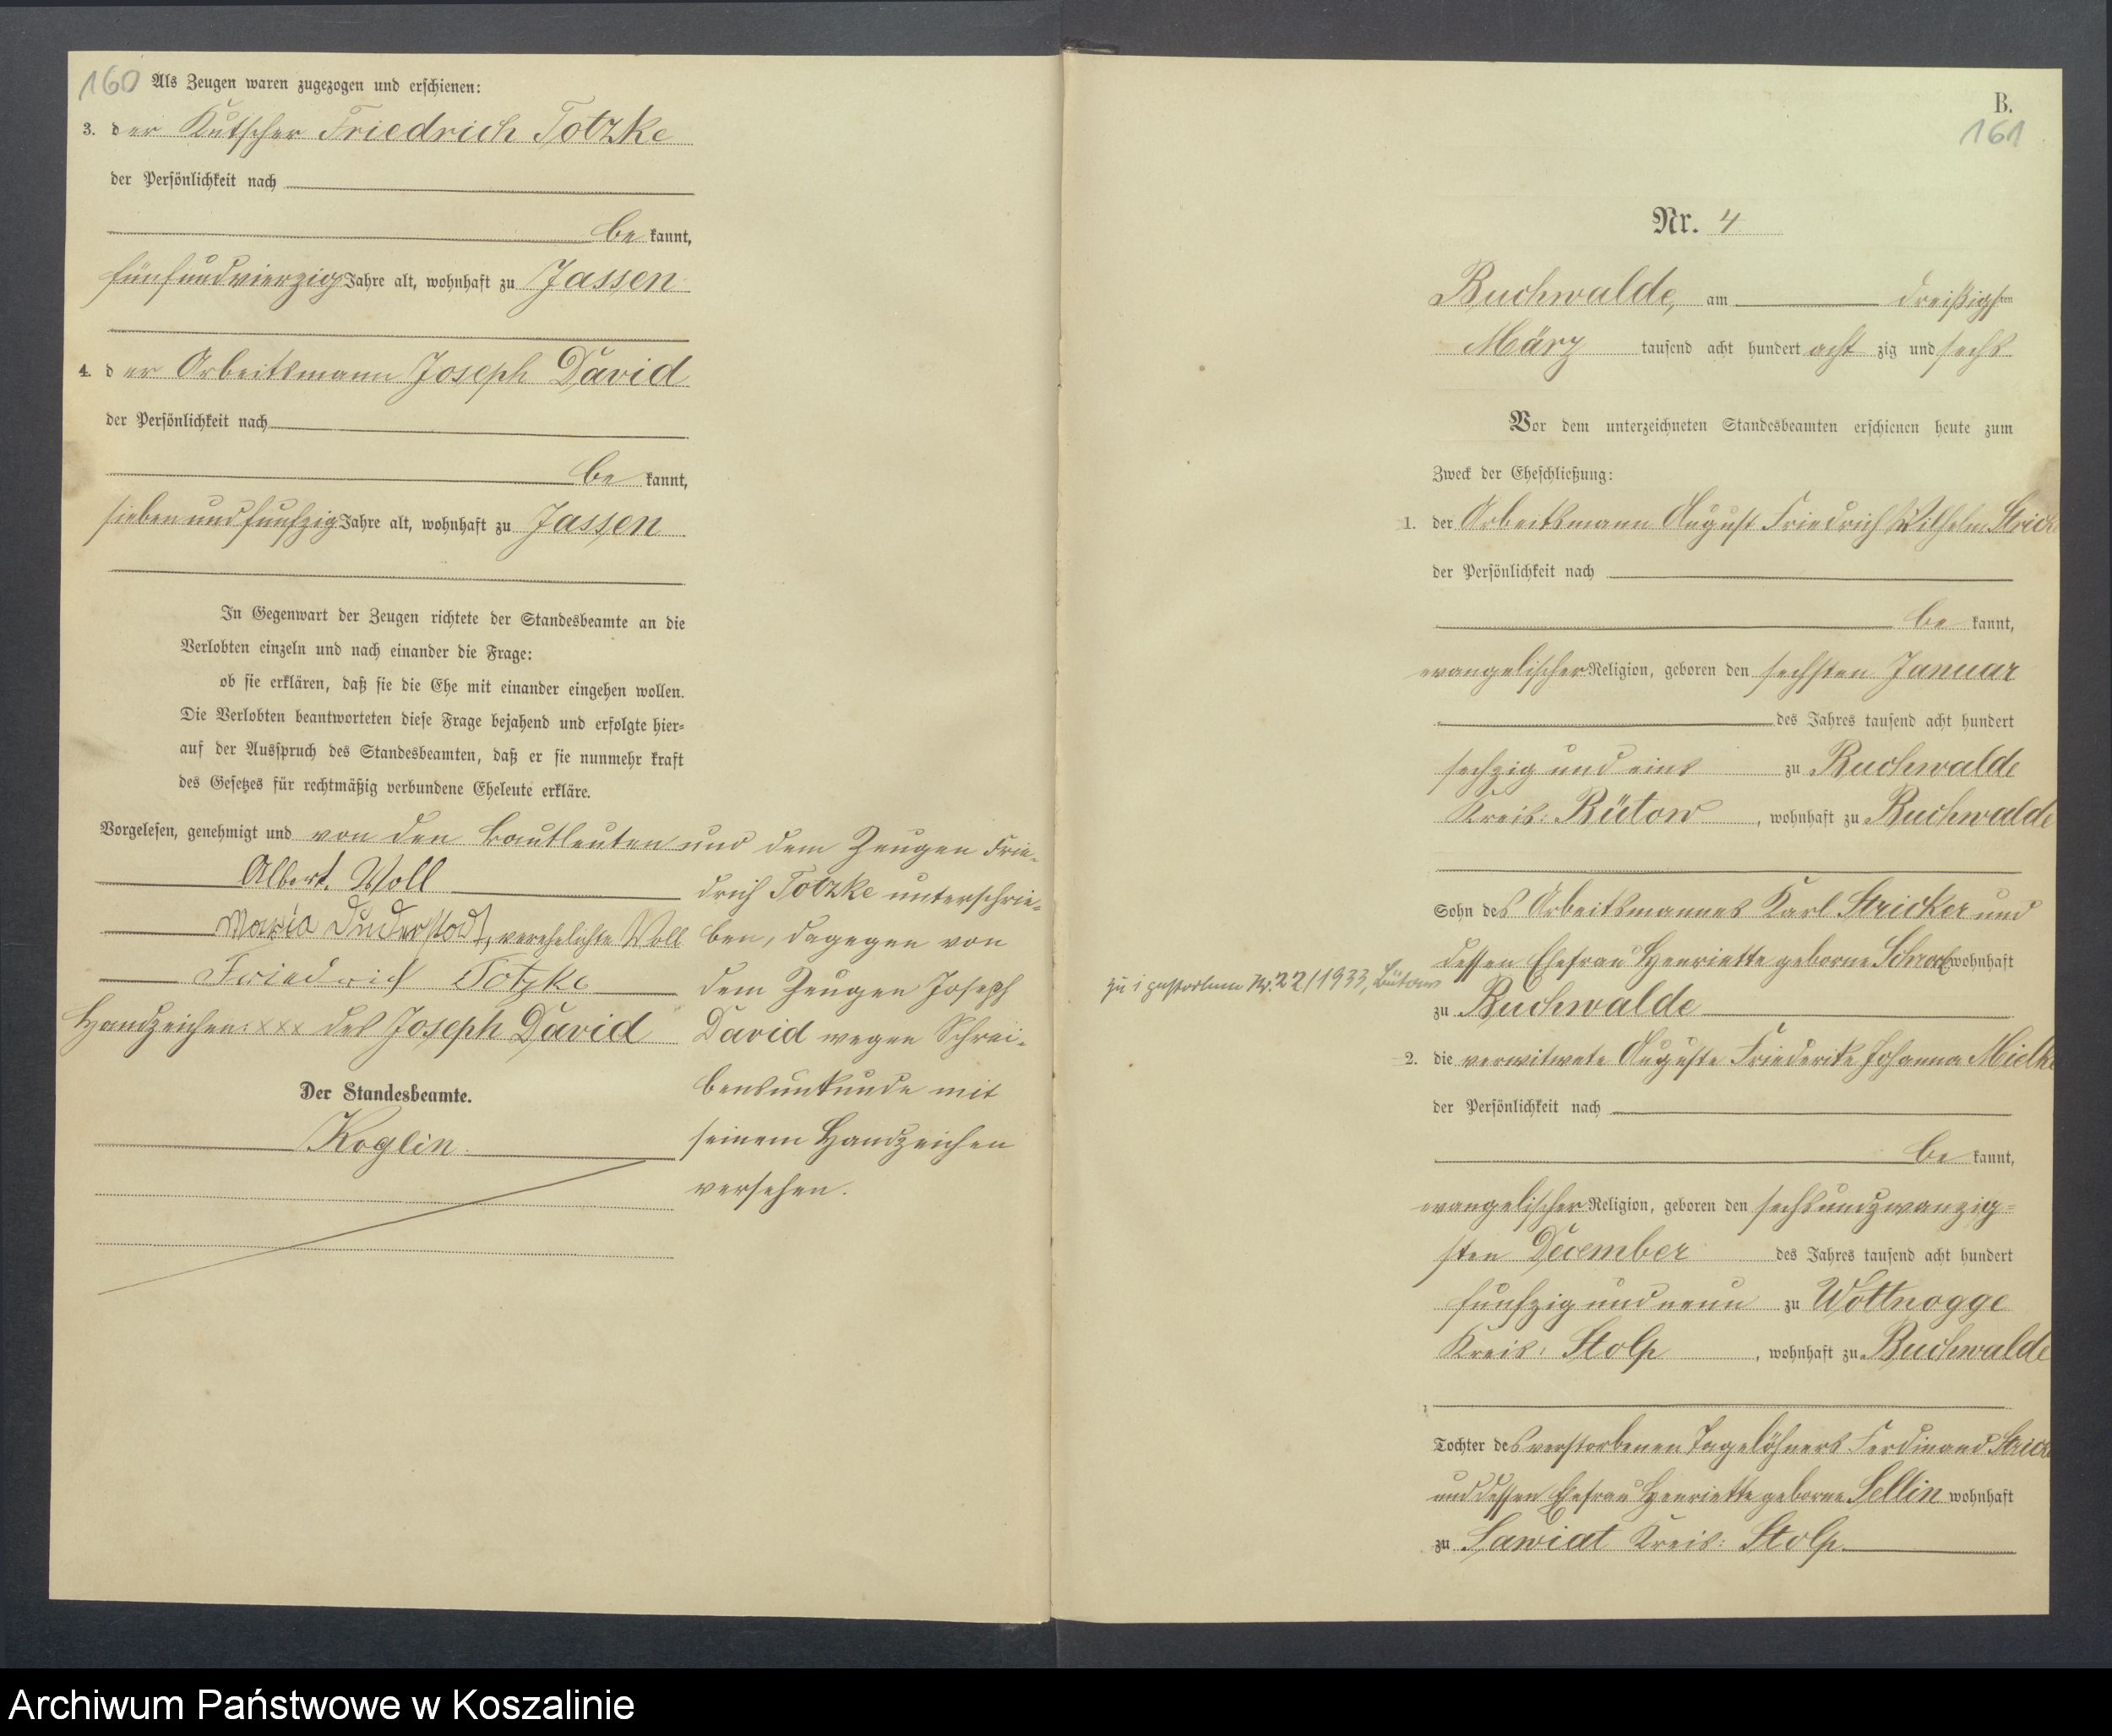 160
Als Zeugen waren zugezogen und erschienen:
3. der Kutscher Friedrich Totzke
der Persönlichkeit nach
be kannt,
fünfundvierzig Jahre alt, wohnhaft zu Jassen
4. der Arbeitsmann Joseph David
der Persönlichkeit nach
be kannt,
siebenundfunfzig Jahre alt, wohnhaft zu Jassen
In Gegenwart der Zeugen richtete der Standesbeamte an die
Verlobten einzeln und nach einander die Frage:
ob sie erklären, daß sie die Ehe mit einander eingehen wollen.
Die Verlobten beantworteten diese Frage bejahend und erfolgte hier-
auf der Ausspruch des Standesbeamten, daß er sie nunmehr kraft
des Gesetzes für rechtmäßig verbundene Eheleute erkläre.
Vorgelesen, genehmigt und von den Brautleuten und dem Zeugen Frie-
drich Totzke unterschrie-
ben, dagegen von
dem Zeugen Joseph
David wegen Schrei-
bensunkunde mit
seinem Handzeichen
versehen.
Albert Woll
Maria Duderstadt, verehelichte Woll
Friedrich Totzke
Handzeichen: xxx des Joseph David
Der Standesbeamte.
Koglin.
B.
161
Nr. 4
Buchwalde, am dreißigsten
März tausend acht hundert acht zig und sechs
Vor dem unterzeichneten Standesbeamten erschienen heute zum
Zweck der Eheschließung:
1. der Arbeitsmann August Friedrich Wilhelm Stricker
der Persönlichkeit nach
be kannt,
evangelischer Religion, geboren den sechsten Januar
des Jahres tausend acht hundert
sechzig und eins zu Buchwalde
Kreis: Bütow, wohnhaft zu Buchwalde
Sohn des Arbeitsmannes Karl Stricker und
dessen Ehefrau Henriette geborne wohnhaft
zu Buchwalde
zu 1 gestorben Nr. 22/1933, Bütow
2. die verwitwete Auguste Friederike Johanna Mielke
der Persönlichkeit nach
be kannt,
evangelischer Religion, geboren den sechsundzwanzig-
sten December des Jahres tausend acht hundert
funfzig und neun zu Wottnogge
Kreis: Stolp, wohnhaft zu Buchwalde
Tochter des verstorbenen Tagelöhners Ferdinand
und dessen Ehefrau Henriette geborne Sellin wohnhaft
zu Lawiat Kreis: Stolp
Archiwum Państwowe w Koszalinie